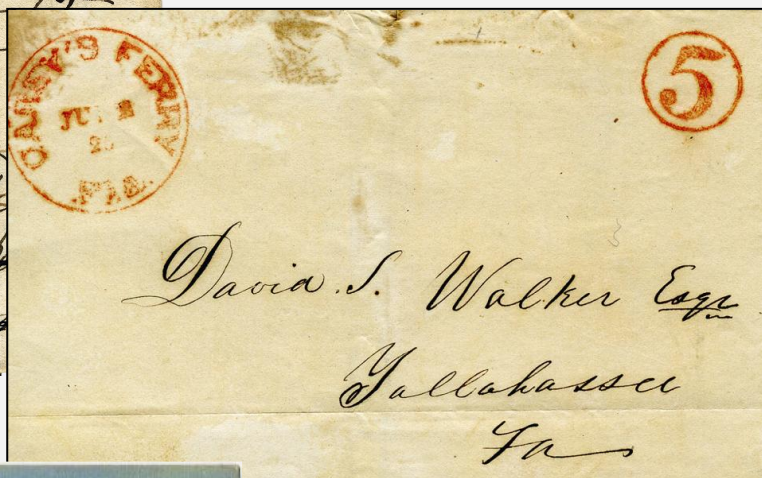 GAREY'S FERRY
JU
Fla.
5
David. S. Walker Esqr
Tallahassee
Fa